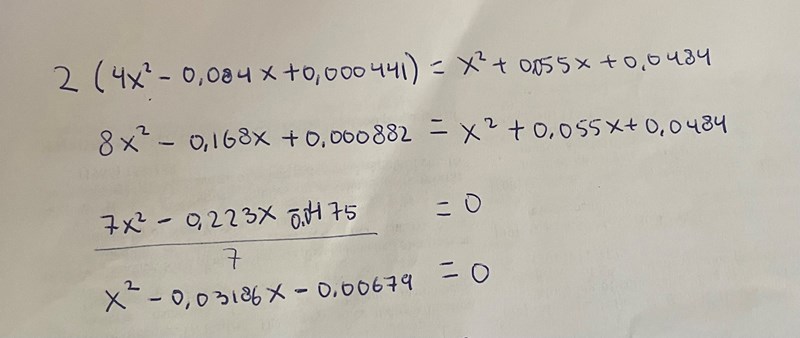 2 (4x² - 0,084x + 0,000441) = x² + 0,055x + 0,0484
8x² - 0,168x + 0,000882 = x² + 0,055x + 0,0484
7x² - 0,223x - 0,0475 = 0
7
x² - 0,03186x - 0,00679 = 0